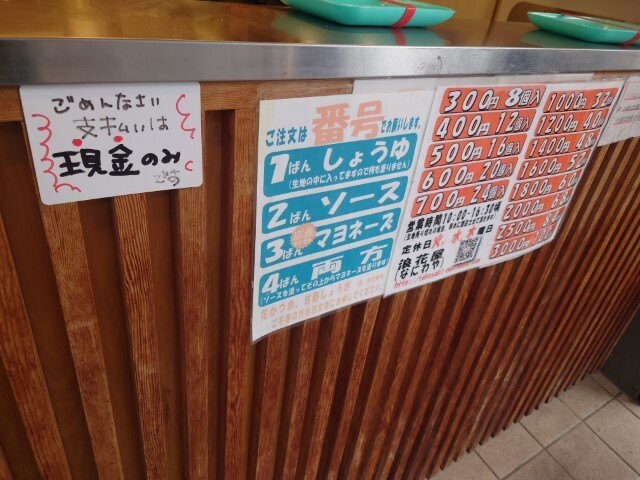 ごめんなさい
支払いは
現金のみ
です
ご注文は番号でお願いします。
1ばん しょうゆ
(生地の中に入ってますので何も塗りません)
2ばん ソース
3ばん マヨネーズ
4ばん 両方
(ソースを塗ってその上からマヨネーズを塗ります)
300円 8個入
400円 12個入
500円 16個入
600円 20個入
700円 24個入
営業時間10:00-16:30頃
定休日 火.水.木曜日
浪花屋
(なにわや)
1000円 32
1200円 40
1400円 48
1600円 52
1800円 6
2000円 68
2500円 84
3000円